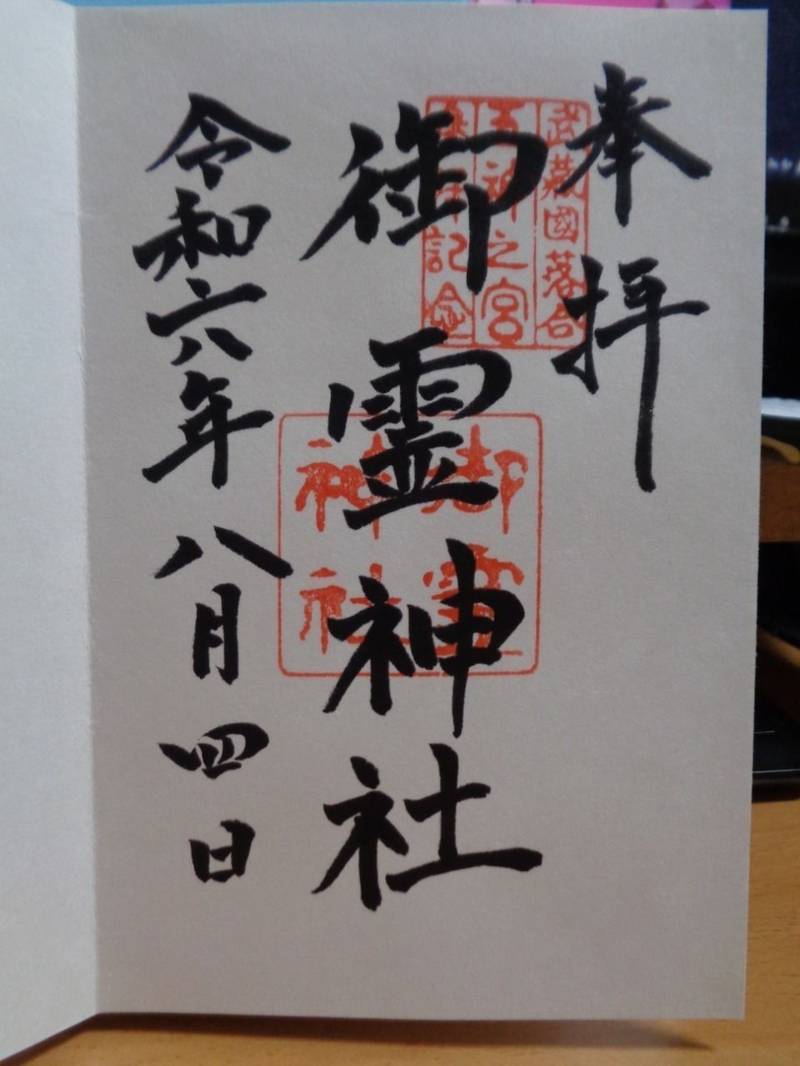 奉拝
武蔵國落合
五神之宮
参拝記念
御霊神社
御霊
神社
令和六年八月四日